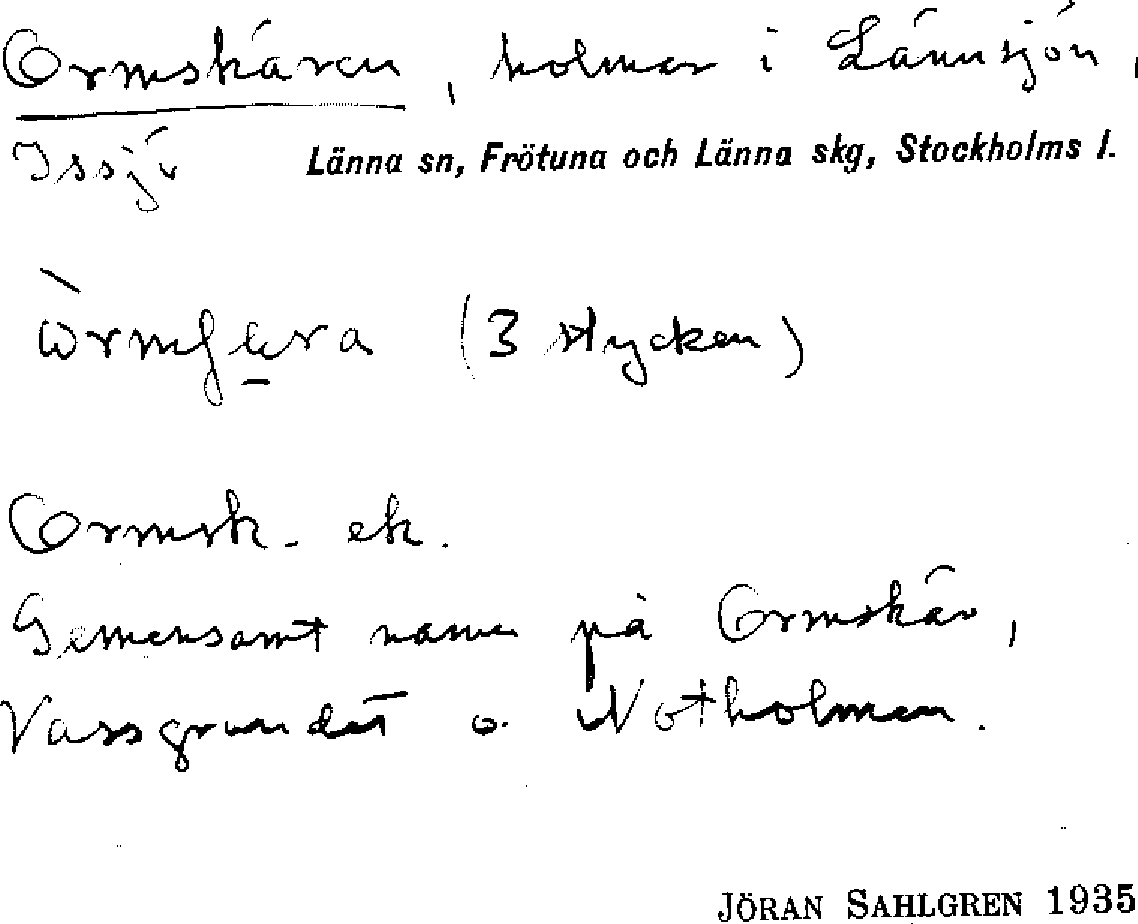 Ormskären, holmar i Lännsjön,
Länna sn, Frötuna och Länna skg, Stockholms l.
(3 stycken)
Ormsk. ek.
Gemensamt namn på Ormskär,
Vassgrundet o. Notholmen.
JÖRAN SAHLGREN 1935